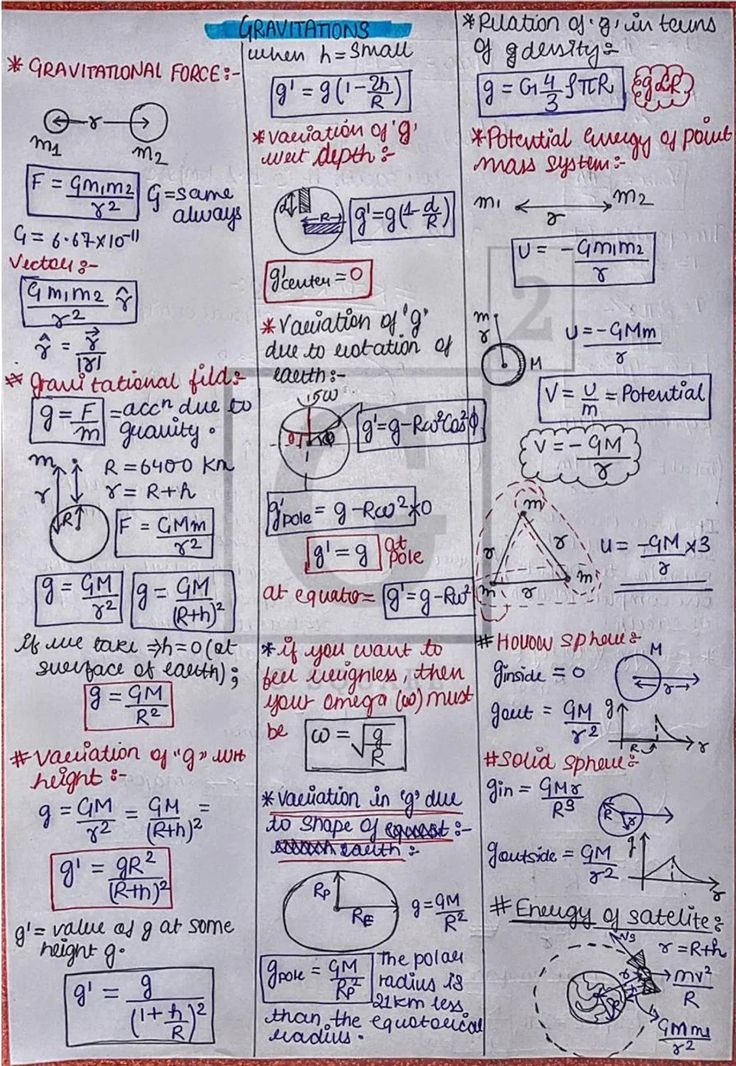 GRAVITATIONS
* GRAVITATIONAL FORCE:-
r
m₁ m₂
F = Gm₁m₂/r² G=same
always
G = 6.67×10⁻¹¹
Vector:-
Gm₁m₂/r² r̂
r̂ = r⃗/|r|
* Gravitational fild:-
g = F/m = accⁿ due to
gravity.
m R = 6400 km
r r = R+h
R F = GMm/r²
g = GM/r² g = GM/(R+h)²
if we take ⇒ h=0 (at
surface of earth);
g = GM/R²
# Variation of "g" wrt
height :-
g = GM/r² = GM/(R+h)² =
g' = gR²/(R+h)²
g' = value of g at some
height g.
g' = g/(1+h/R)²
when h = small
g' = g(1-2h/R)
* Variation of 'g'
wrt depth:-
d R g'=g(1-d/R)
g'center = 0
* Variation of 'g'
due to rotation of
earth:-
ω
g'=g-Rω²Cos²ϕ
g'pole = g-Rω²×0
g' = g at
pole
at equator= g'=g-Rω²
* if you want to
feel weighless, then
your omega (ω) must
be ω = √g/R
* Variation in 'g' due
to shape of
earth :-
Rp
RE g=GM/R²
gpole = GM/Rp² The polar
radius is
21km less
than the equatorical
radius.
* Rilation of 'g' in terms
of g density:-
g = G 4/3 ρπR g∝R
* Potential energy of point
mass system:-
m₁ m₂
r
U = -Gm₁m₂/r
m
r U = -GMm/r
M
V = U/m = Potential
V = -GM/r
m
r r U = -GM/r ×3
m r m
# Hollow sphere:-
M
ginside = 0 r
gout = GM/r² g
R r
# Solid sphere:-
gin = GMr/R³ R r
goutside = GM/r² g
r
# Energy of satelite:-
r = R+h
mv²/R
GMms/r²